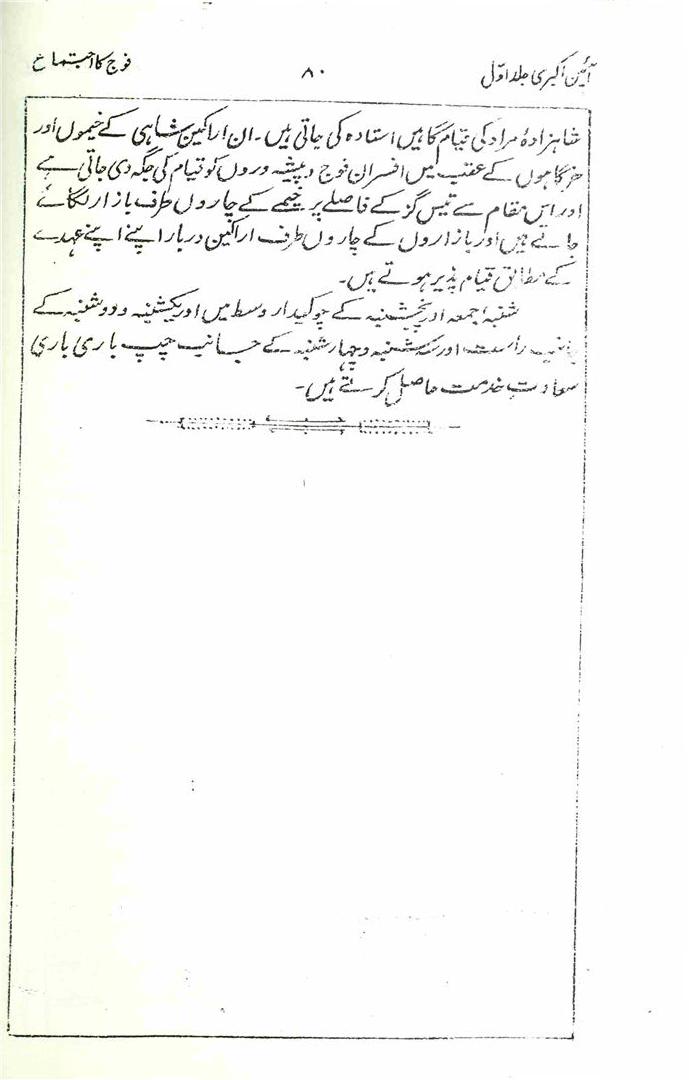 آئین اکبری جلد اوّل
۸۰
فوج کا اجتماع
شاہزادۂ مراد کی قیام گاہیں استادہ کی جاتی ہیں۔ ان اراکین شاہی کے خیموں اور
خرگاہوں کے عقب میں افسران فوج و پیشہ وروں کو قیام کی جگہ دی جاتی ہے
اور اس مقام سے تیس گز کے فاصلے پر خیمے کے چاروں طرف بازار لگائے
جاتے ہیں اور بازاروں کے چاروں طرف اراکین دربار اپنے اپنے عہدے
کے مطابق قیام پذیر ہوتے ہیں۔
شنبہ، جمعہ اور پنجشنبہ کے چوکیدار وسط میں اور یکشنبہ و دو شنبہ کے
جانب راست اور سہ شنبہ و چہار شنبہ کے جانب چپ باری باری
سعادت خدمت حاصل کرتے ہیں۔